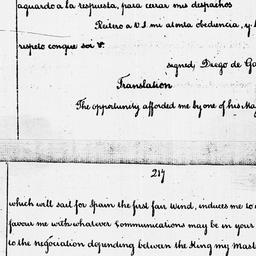 aguardo a la respuesta, para cerar mis despachos
Reitero a V.S. mi atenta obediencia, y
respeto conque soi V.
signed, Diego de Ga
Translation
The opportunity afforded me by one of his Ma
217
which will sail for Spain the first fair wind, induces me to
favour me with whatever Communications may be in your
to the negociation depending between the King my Mast